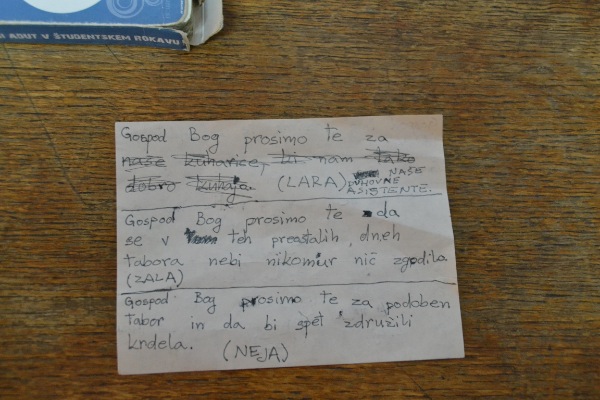 ADUT V ŠTUDENTSKEM ROKAVU
Gospod Bog prosimo te za
naše kuharice, ki nam tako
dobro kuhajo. (LARA) NAŠE
DUHOVNE
ASISTENTE.
Gospod Bog prosimo te da
se v teh preostalih dneh
tabora nebi nikomur nič zgodilo.
(ZALA)
Gospod Bog prosimo te za podoben
tabor in da bi spet združili
krdela. (NEJA)